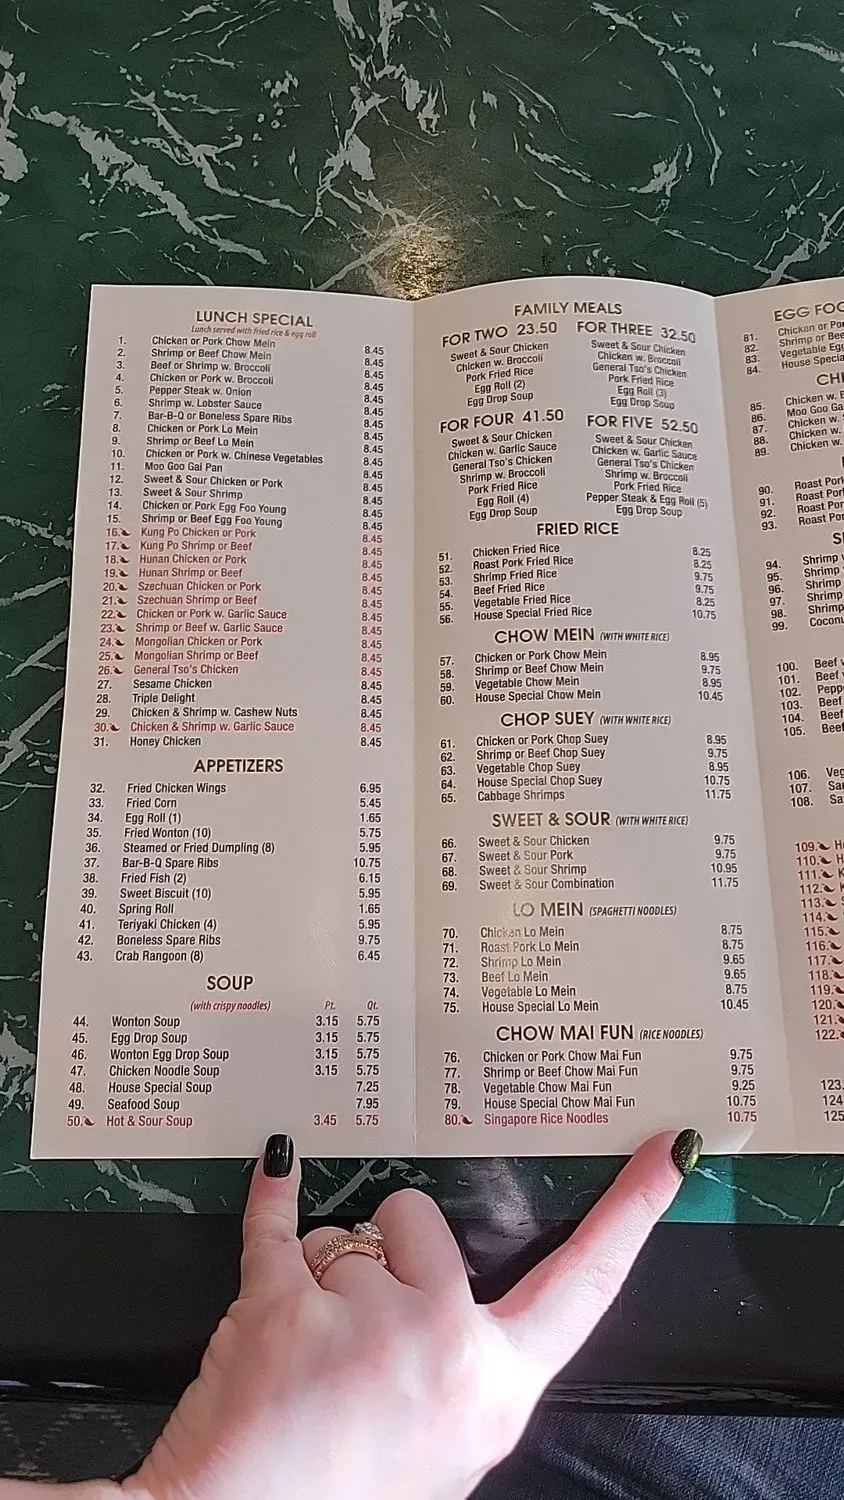 LUNCH SPECIAL
Lunch served with fried rice & egg roll
1. Chicken or Pork Chow Mein 8.45
2. Shrimp or Beef Chow Mein 8.45
3. Beef or Shrimp w. Broccoli 8.45
4. Chicken or Pork w. Broccoli 8.45
5. Pepper Steak w. Onion 8.45
6. Shrimp w. Lobster Sauce 8.45
7. Bar-B-Q or Boneless Spare Ribs 8.45
8. Chicken or Pork Lo Mein 8.45
9. Shrimp or Beef Lo Mein 8.45
10. Chicken or Pork w. Chinese Vegetables 8.45
11. Moo Goo Gai Pan 8.45
12. Sweet & Sour Chicken or Pork 8.45
13. Sweet & Sour Shrimp 8.45
14. Chicken or Pork Egg Foo Young 8.45
15. Shrimp or Beef Egg Foo Young 8.45
16. Kung Po Chicken or Pork 8.45
17. Kung Po Shrimp or Beef 8.45
18. Hunan Chicken or Pork 8.45
19. Hunan Shrimp or Beef 8.45
20. Szechuan Chicken or Pork 8.45
21. Szechuan Shrimp or Beef 8.45
22. Chicken or Pork w. Garlic Sauce 8.45
23. Shrimp or Beef w. Garlic Sauce 8.45
24. Mongolian Chicken or Pork 8.45
25. Mongolian Shrimp or Beef 8.45
26. General Tso's Chicken 8.45
27. Sesame Chicken 8.45
28. Triple Delight 8.45
29. Chicken & Shrimp w. Cashew Nuts 8.45
30. Chicken & Shrimp w. Garlic Sauce 8.45
31. Honey Chicken 8.45
APPETIZERS
32. Fried Chicken Wings 6.95
33. Fried Corn 5.45
34. Egg Roll (1) 1.65
35. Fried Wonton (10) 5.75
36. Steamed or Fried Dumpling (8) 5.95
37. Bar-B-Q Spare Ribs 10.75
38. Fried Fish (2) 6.15
39. Sweet Biscuit (10) 5.95
40. Spring Roll 1.65
41. Teriyaki Chicken (4) 5.95
42. Boneless Spare Ribs 9.75
43. Crab Rangoon (8) 6.45
SOUP
(with crispy noodles) Pt. Qt.
44. Wonton Soup 3.15 5.75
45. Egg Drop Soup 3.15 5.75
46. Wonton Egg Drop Soup 3.15 5.75
47. Chicken Noodle Soup 3.15 5.75
48. House Special Soup 7.25
49. Seafood Soup 7.95
50. Hot & Sour Soup 3.45 5.75
FAMILY MEALS
FOR TWO 23.50
Sweet & Sour Chicken
Chicken w. Broccoli
Pork Fried Rice
Egg Roll (2)
Egg Drop Soup
FOR THREE 32.50
Sweet & Sour Chicken
Chicken w. Broccoli
General Tso's Chicken
Pork Fried Rice
Egg Roll (3)
Egg Drop Soup
FOR FOUR 41.50
Sweet & Sour Chicken
Chicken w. Garlic Sauce
General Tso's Chicken
Shrimp w. Broccoli
Pork Fried Rice
Egg Roll (4)
Egg Drop Soup
FOR FIVE 52.50
Sweet & Sour Chicken
Chicken w. Garlic Sauce
General Tso's Chicken
Shrimp w. Broccoli
Pork Fried Rice
Pepper Steak & Egg Roll (5)
Egg Drop Soup
FRIED RICE
51. Chicken Fried Rice 8.25
52. Roast Pork Fried Rice 8.25
53. Shrimp Fried Rice 9.75
54. Beef Fried Rice 9.75
55. Vegetable Fried Rice 8.25
56. House Special Fried Rice 10.75
CHOW MEIN (WITH WHITE RICE)
57. Chicken or Pork Chow Mein 8.95
58. Shrimp or Beef Chow Mein 9.75
59. Vegetable Chow Mein 8.95
60. House Special Chow Mein 10.45
CHOP SUEY (WITH WHITE RICE)
61. Chicken or Pork Chop Suey 8.95
62. Shrimp or Beef Chop Suey 9.75
63. Vegetable Chop Suey 8.95
64. House Special Chop Suey 10.75
65. Cabbage Shrimps 11.75
SWEET & SOUR (WITH WHITE RICE)
66. Sweet & Sour Chicken 9.75
67. Sweet & Sour Pork 9.75
68. Sweet & Sour Shrimp 10.95
69. Sweet & Sour Combination 11.75
LO MEIN (SPAGHETTI NOODLES)
70. Chicken Lo Mein 8.75
71. Roast Pork Lo Mein 8.75
72. Shrimp Lo Mein 9.65
73. Beef Lo Mein 9.65
74. Vegetable Lo Mein 8.75
75. House Special Lo Mein 10.45
CHOW MAI FUN (RICE NOODLES)
76. Chicken or Pork Chow Mai Fun 9.75
77. Shrimp or Beef Chow Mai Fun 9.75
78. Vegetable Chow Mai Fun 9.25
79. House Special Chow Mai Fun 10.75
80. Singapore Rice Noodles 10.75
EGG FOO
81. Chicken or Por
82. Shrimp or Bee
83. Vegetable Egg
84. House Specia
CH
85. Chicken w.
86. Moo Goo Ga
87. Chicken w.
88. Chicken w.
89. Chicken w.
90. Roast Pork
91. Roast Por
92. Roast Por
93. Roast Po
94. Shrimp
95. Shrimp
96. Shrimp
97. Shrimp
98. Shrimp
99. Coconu
100. Beef
101. Beef
102. Pepp
103. Beef
104. Beef
105. Beef
106. Veg
107. Sau
108. Sa
109. H
110. H
111. K
112. K
113.
114.
115.
116.
117.
118.
119.
120.
121.
122.
123.
124
125